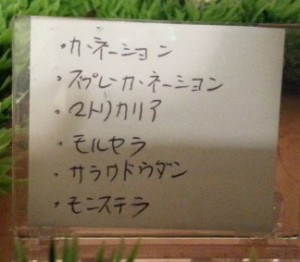 ・カーネーション
・スプレーカーネーション
・マトリカリア
・モルセラ
・サラサドウダン
・モンステラ